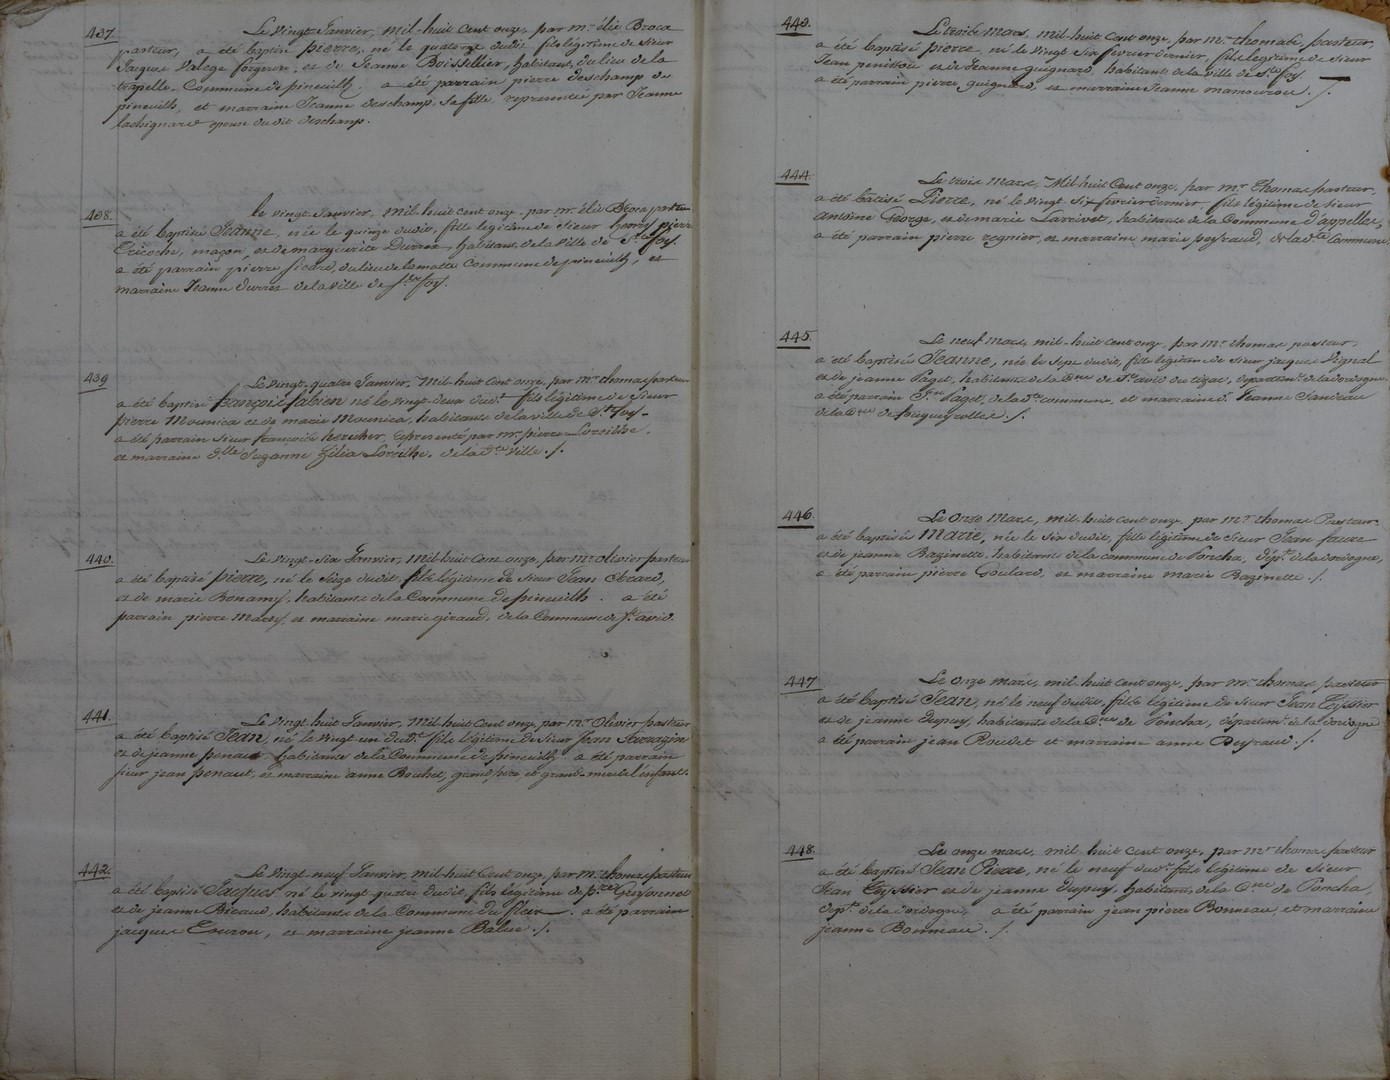 437.
Le vingt Janvier, mil-huit cent onze, par mr. élie Broca
pasteur, a été baptisé pierre, né le quatorze dudit, fils légitime de sieur
Jacques Valege forgeron, et de Jeanne Boissellier, habitant, du lieu de la
trapelle, Commune de pineuilh. a été parrain pierre deschamp de
pineuilh, et marraine Jeanne deschamp sa fille, representée par Jeanne
lachignard epouse dudit deschamp.
438.
le vingt Janvier, mil huit cent onze, par mr. élie Broca pasteur
a été baptisée Jeanne, née le quinze dudit, fille legitime de Sieur henry pierre
Ericoche, maçon, et de marguerite Durrez, habitant, de la Ville de Ste foy.
a été parrain pierre sicard, du lieu de lamotte Commune de pineuilh, et
marraine Jeanne durrez de la ville de Ste foy.
439
Le vingt-quatre Janvier, mil huit cent onze, par mr. thomas pasteur
a été baptisé françois fabien né le vingt-deux dudt. fils légitime de Sieur
pierre Mounica et de marie Mounica, habitants de la ville de Ste foy.
a été parrain sieur françois hercher, représenté par mr. pierre Loreilhe.
et marraine dlle. Suzanne Zélia Loreilhe, de la dte ville ./.
440.
Le vingt-Six Janvier, Mil-huit Cent onze, par mr. olivier pasteur
a été baptisé pierre, né le Seize dudit, fils légitime de Sieur Jean
et de marie Bonamy, habitants de la Commune de pineuilh. a été
parrain pierre Marty, et marraine marie giraud, de la Commune de St. avid.
441.
Le vingt huit Janvier, Mil huit Cent onze, par mr. Olivier pasteur
a été baptisé Jean, né le vingt-un dudt. fils légitime de Sieur Jean Sarrazin
et de jeanne penaud habitants de la Commune de pineuilh a été parrain
Sieur jean penaut, et marraine anne Bouhet, grand-père et grand-mère de l'enfant.
442.
Le vingt neuf Janvier, mil huit Cent onze, par mr. thomas pasteur
a été baptisé Jacques né le vingt-quatre dudit, fils légitime de pre
et de jeanne Ricaud, habitants de la Commune du fleix. a été parrain
jacques et marraine jeanne ./.
443.
Le trois Mars, mil-huit Cent onze, par mr. thomas, pasteur,
a été baptisé pierre, né le vingt Six fevrier dernier, fils légitime de Sieur
Jean penillou et de Jeanne guignard, habitants de la Ville de Ste foy.
a été parrain pierre guignard, et marraine Jeanne mamouroux ./.
444.
Le trois Mars, Mil-huit Cent onze, par mr. Thomas pasteur,
a été batisé Pierre, né le vingt Six fevrier dernier, fils légitime de Sieur
antoine George, et de marie Larrivet, habitants de la Commune d'appelles,
a été parrain pierre regnier, et marraine marie peyraud, de la dte Commune.
445.
Le neuf mars, mil-huit cent onze, par mr. thomas pasteur,
a été baptisée Jeanne, née le Sept dudit, fille légitime de Sieur jacques Vignal
et de jeanne Paget, habitants de la Cne de St avid du tizac, departemt. de la dordogne.
a été parrain Paget, de la de. commune, et marraine Jeanne
de la Cne de fougueyrolles ./.
446.
Le Onze Mars, mil-huit cent onze, par mr. thomas Pasteur
a été baptisée Marie, née le Six dudit, fille légitime de Sieur Jean faure
et de jeanne Razinette, habitants de la commune de Poncha, dept. de la dordogne,
a été parrain pierre Goulard, et marraine marie Razinette ./.
447
Le onze mars, mil-huit cent onze, par mr. thomas pasteur
a été baptisé Jean, né le neuf dudit, fils légitime de Sieur Jean Eyssier
et de jeanne dupuy, habitants de la Cne de Poncha, departemt. de la dordogne
a été parrain jean Roudet et marraine anne Peyraud ./.
448.
Le onze mars, mil huit cent onze, par mr. thomas pasteur
a été baptisé Jean Pierre, né le neuf dudt. fils légitime de Sieur
Jean Eyssier et de jeanne dupuy, habitants de la Cne de Poncha,
dept. de la dordogne, a été parrain jean pierre Bonneau, et marraine
jeanne Bonneau ./.